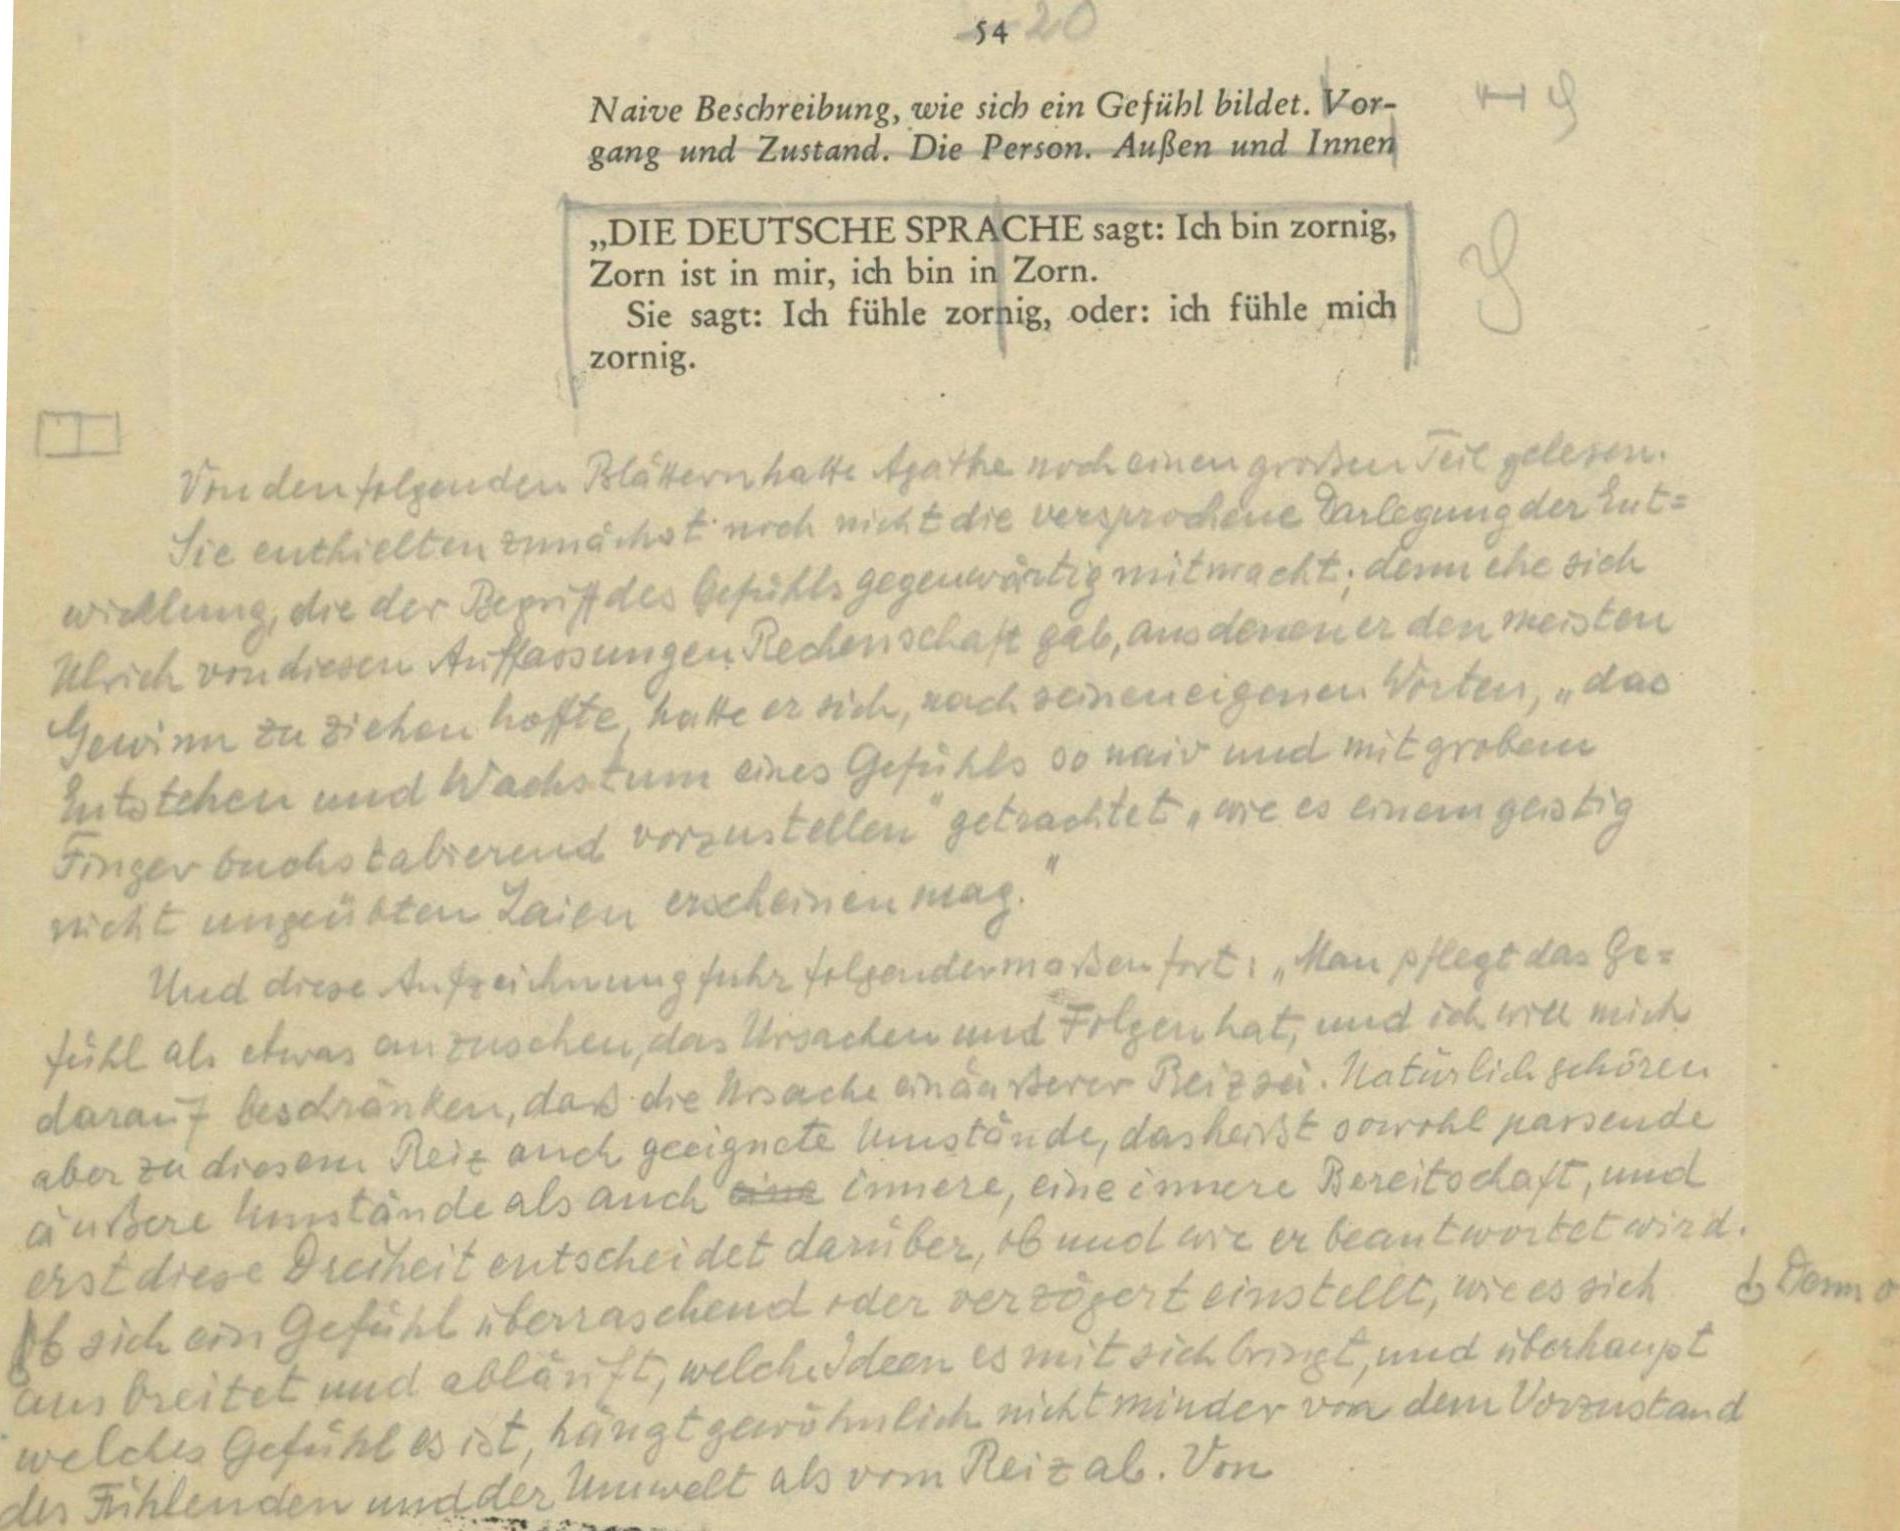 54 20
Naive Beschreibung, wie sich ein Gefühl bildet. Vor-
gang und Zustand. Die Person. Außen und Innen
„DIE DEUTSCHE SPRACHE sagt: Ich bin zornig,
Zorn ist in mir, ich bin in Zorn.
Sie sagt: Ich fühle zornig, oder: ich fühle mich
zornig.
Von den folgenden Blättern hatte Agathe noch einen großen Teil gelesen.
Sie enthielten zunächst noch nicht die versprochene Darlegung der Ent=
wicklung, die der Begriff des Gefühls gegenwärtig mitmacht; denn ehe sich
Ulrich von diesen Auffassungen Rechenschaft gab, aus denen er den meisten
Gewinn zu ziehen hoffte, hatte er sich, nach seinen eigenen Worten, „das
Entstehen und Wachstum eines Gefühls so naiv und mit grobem
Finger buchstabierend vorzustellen" getrachtet „wie es einem geistig
nicht ungeübten Laien erscheinen mag."
Und diese Aufzeichnung fuhr folgendermaßen fort: „Man pflegt das Ge=
fühl als etwas anzusehen, das Ursachen und Folgen hat, und ich will mich
darauf beschränken, daß die Ursache ein äußerer Reiz sei. Natürlich gehören
aber zu diesem Reiz auch geeignete Umstände, das heißt sowohl passende
äußere Umstände als auch eine innere, eine innere Bereitschaft, und
erst diese Dreiheit entscheidet darüber, ob und wie er beantwortet wird.
Ob sich ein Gefühl überraschend oder verzögert einstellt, wie es sich Denn o
ausbreitet und abläuft, welche Ideen es mit sich bringt, und überhaupt
welches Gefühl es ist, hängt gewöhnlich nicht minder von dem Vorzustand
des Fühlenden und der Umwelt als vom Reiz ab. Von